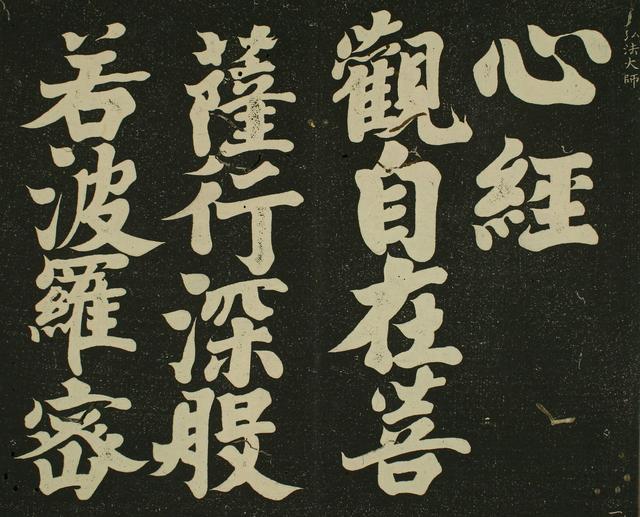 弘法大師
一
心經
觀自在菩
薩行深般
若波羅密